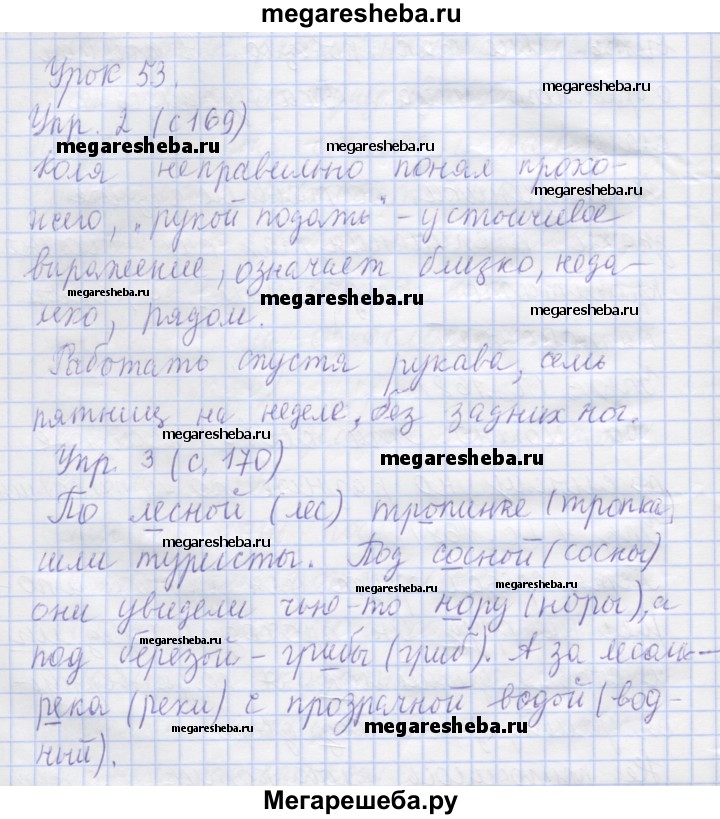 megaresheba.ru
Урок 53.
megaresheba.ru
Упр. 2 (с 169)
megaresheba.ru
megaresheba.ru
Коля неправильно понял прохо-
megaresheba.ru
жего, „рукой подать" - устойчивое
выражение, означает близко, неда-
megaresheba.ru
megaresheba.ru
леко, рядом.
megaresheba.ru
Работать спустя рукава, семь
пятниц на неделе, без задних ног.
megaresheba.ru
Упр. 3 (с. 170)
megaresheba.ru
По лесной (лес) тропинке (тропка)
megaresheba.ru
шли туристы. Под сосной (сосны)
megaresheba.ru
megaresheba.ru
они увидели чью-то нору (норы), а
megaresheba.ru
под берёзой - грибы (гриб). А за лесом -
река (реки) с прозрачной водой (вод-
megaresheba.ru
megaresheba.ru
ный).
Мегарешеба.ру